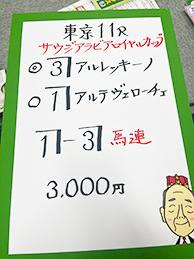 東京11R
サウジアラビアロイヤルカップ
◎ 3 アルレッキーノ
○ 7 アルテヴェローチェ
7-3 馬連
3,000円